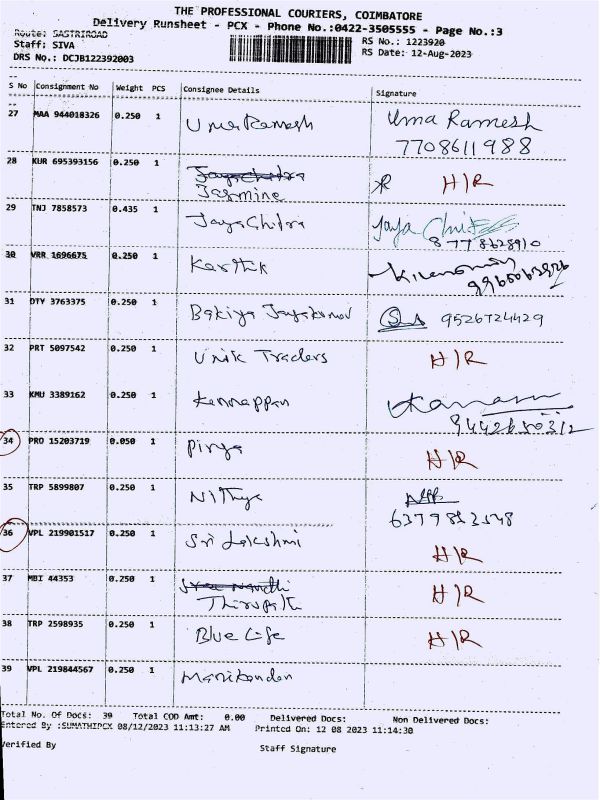 THE PROFESSIONAL COURIERS, COIMBATORE
Delivery Runsheet - PCX - Phone No.:0422-3505555 - Page No.:3
Route: SASTRIROAD
Staff: SIVA
RS No.: 1223920
DRS No.: DCJB122392003
RS Date: 12-Aug-2023
S No Consignment No Weight PCS Consignee Details Signature
27 MAA 944018326 0.250 1 Uma Ramesh Uma Ramesh
7708611988
28 KUR 695393156 0.250 1 Jayachitra H/R
Jasmine
29 TNJ 7858573 0.435 1 JayaChitra Jaya Chitra
8778628910
30 VRR 1696675 0.250 1 Karthik
9965063926
31 DTY 3763375 0.250 1 Bakiya Jayakumar 9526724429
32 PRT 5097542 0.250 1 Unik Traders H/R
33 KMU 3389162 0.250 1 Kannappan
9442650312
34 PRO 15203719 0.050 1 Pirya H/R
35 TRP 5899807 0.250 1 Nithya
6379852548
36 VPL 219901517 0.250 1 Sri Lakshmi H/R
37 MBI 44353 0.250 1 H/R
Thirupathi
38 TRP 2598935 0.250 1 Blue Life H/R
39 VPL 219844567 0.250 1 Manikandan
Total No. Of Docs: 39 Total COD Amt: 0.00 Delivered Docs: Non Delivered Docs:
Entered By :SUMATHIPCX 08/12/2023 11:13:27 AM Printed On: 12 08 2023 11:14:30
Verified By Staff Signature